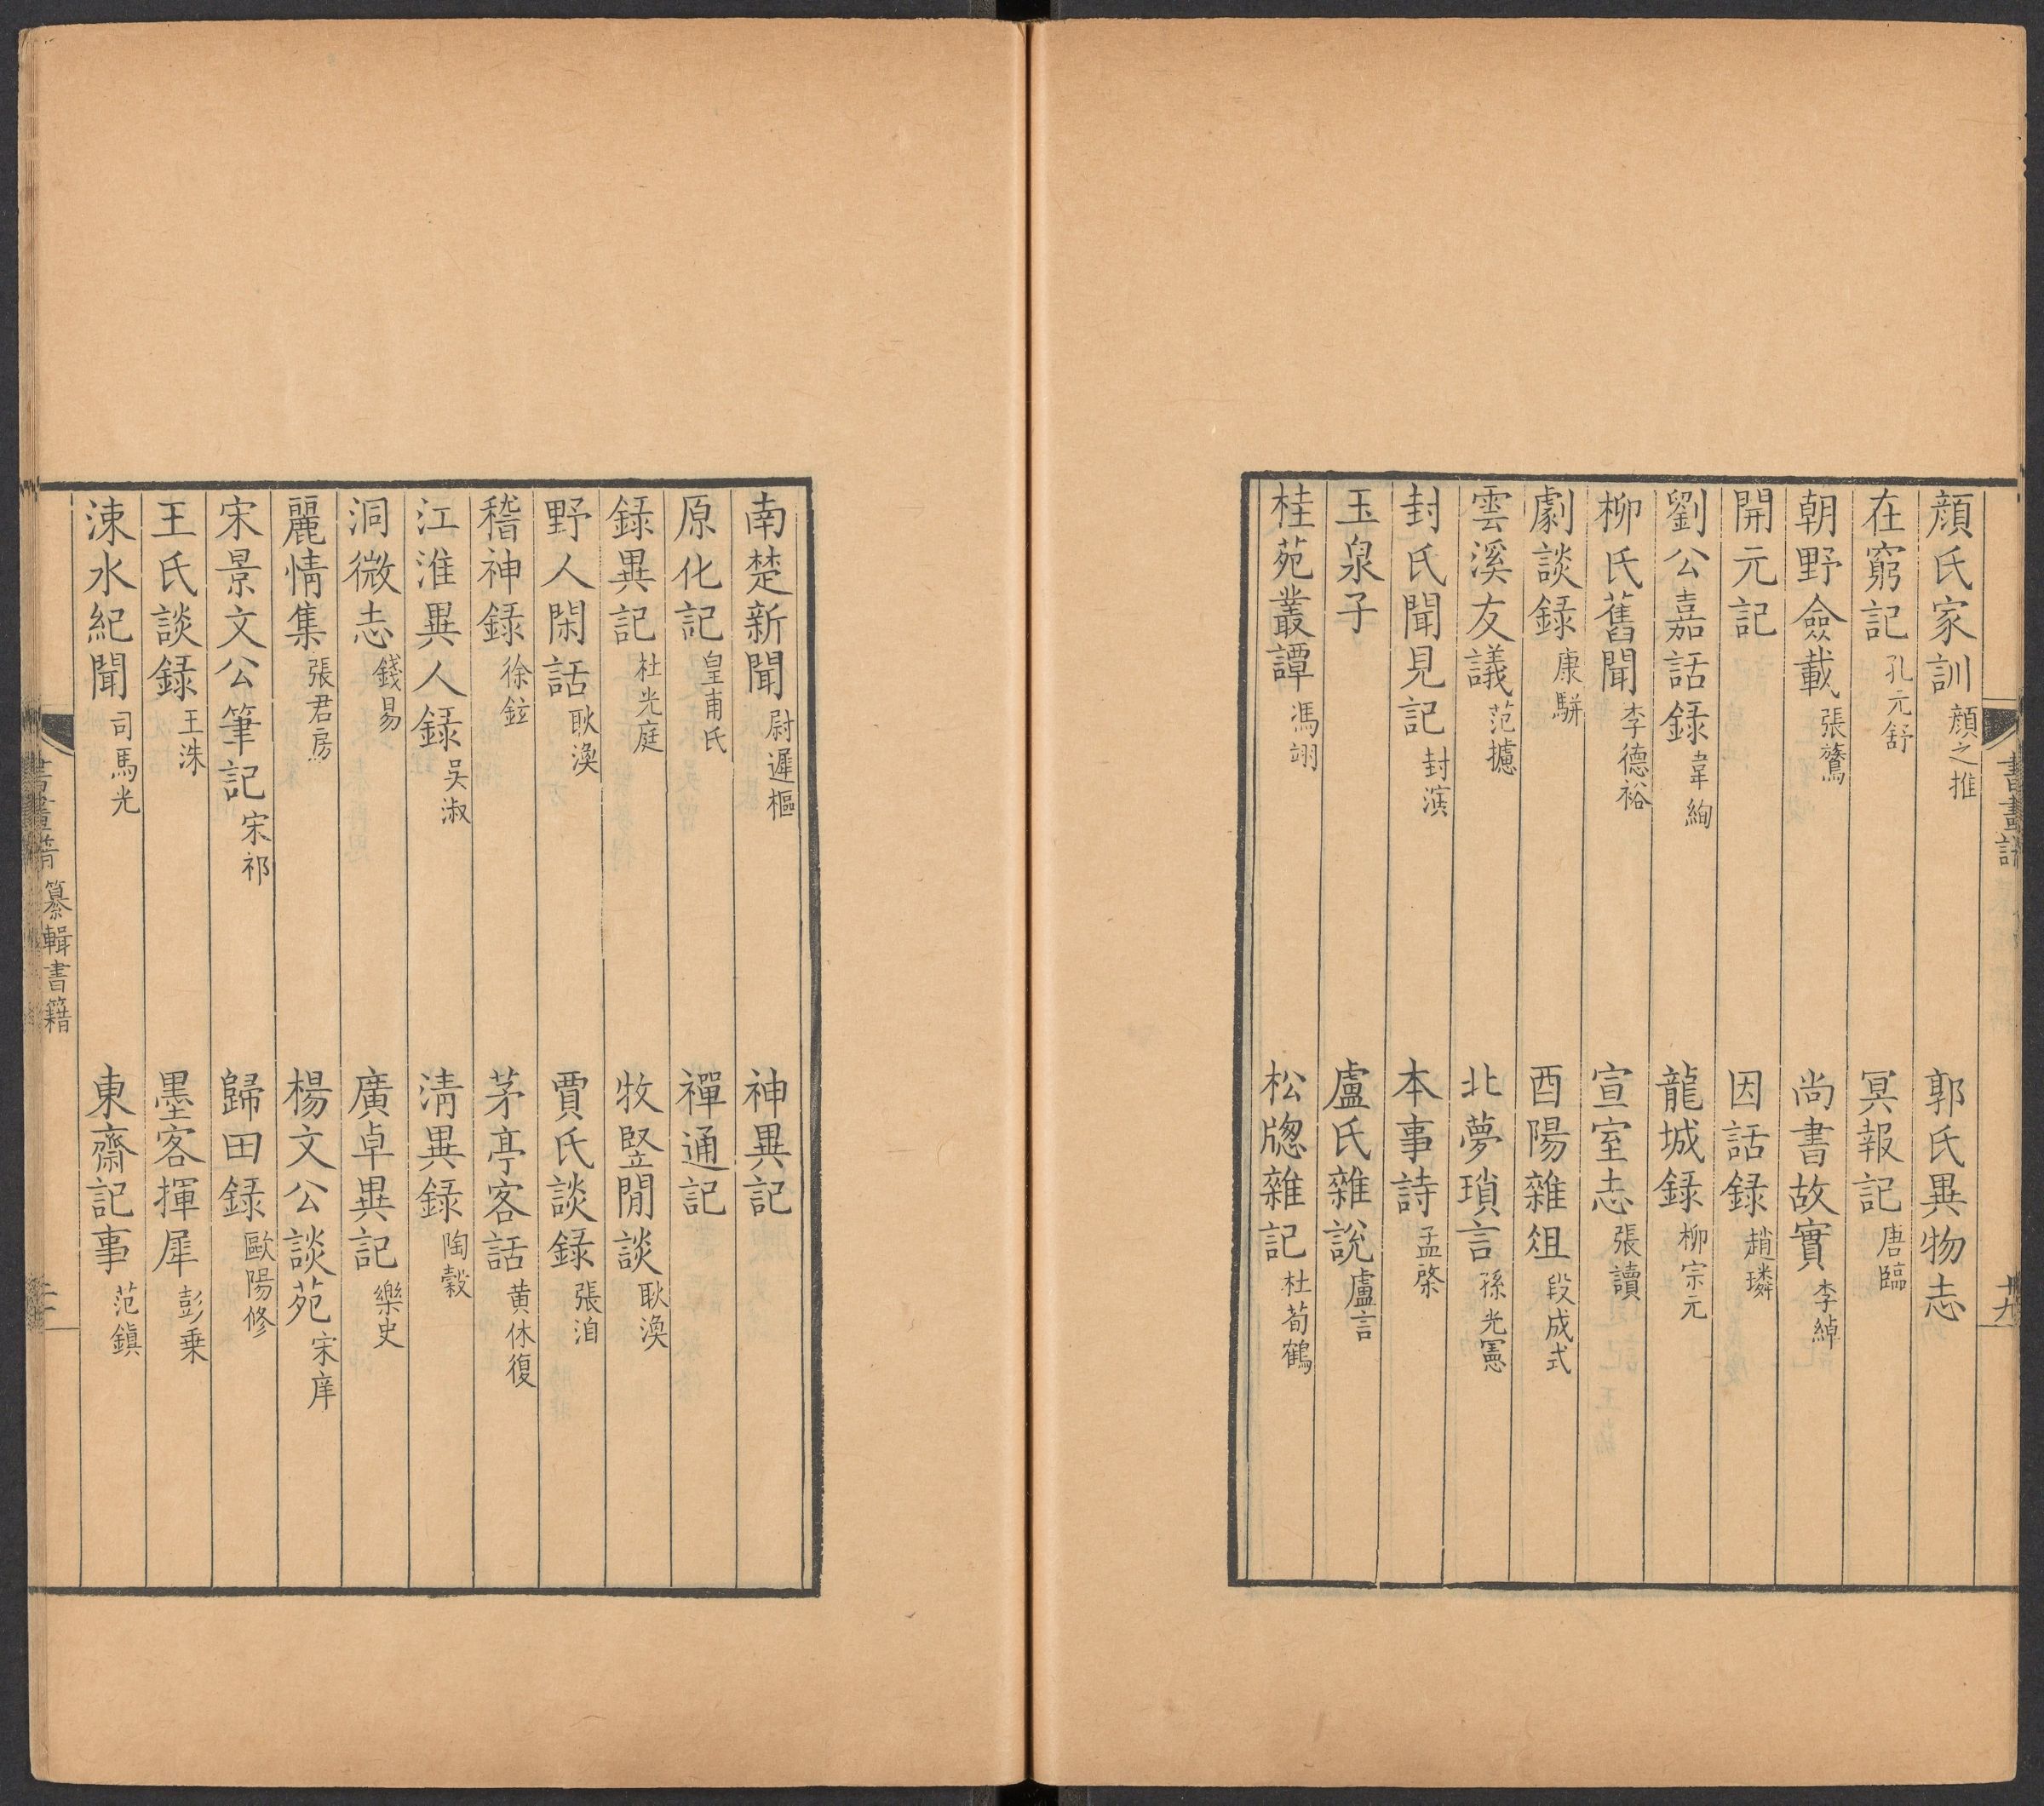 顏氏家訓 顏之推 郭氏異物志
在窮記 孔元舒 冥報記 唐臨
朝野僉載 張鷟 尚書故實 李綽
開元記 因話録 趙璘
劉公嘉話録 韋絢 龍城録 柳宗元
柳氏舊聞 李德裕 宣室志 張讀
劇談録 康騈 酉陽雜俎 段成式
雲溪友議 范攄 北夢瑣言 孫光憲
封氏聞見記 封演 本事詩 孟棨
玉泉子 盧氏雜說 盧言
桂苑叢譚 馮翊 松牕雜記 杜荀鶴
書畫譜
十九
南楚新聞 尉遲樞 神異記
原化記 皇甫氏 禪通記
録異記 杜光庭 牧豎閒談 耿渙
野人閑話 耿渙 賈氏談録 張洎
稽神録 徐鉉 茅亭客話 黄休復
江淮異人録 吳淑 清異録 陶穀
洞微志 錢易 廣卓異記 樂史
麗情集 張君房 楊文公談苑 宋庠
宋景文公筆記 宋祁 歸田録 歐陽修
王氏談録 王洙 墨客揮犀 彭乗
涑水紀聞 司馬光 東齋記事 范鎮
書畫譜 纂輯書籍